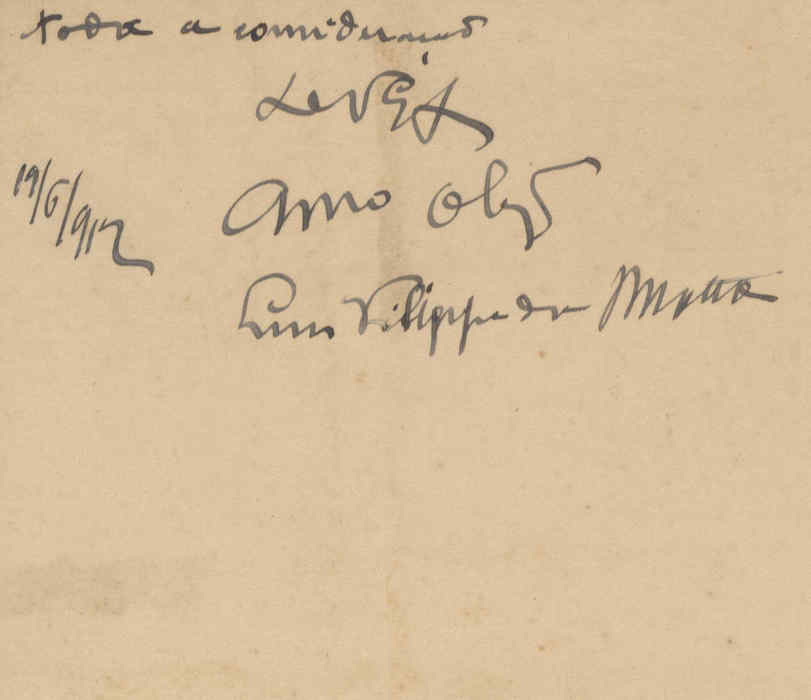 toda a consideração
De V. Ex.
19/6/912
Amo Obgo
Luis Filippe da Motta